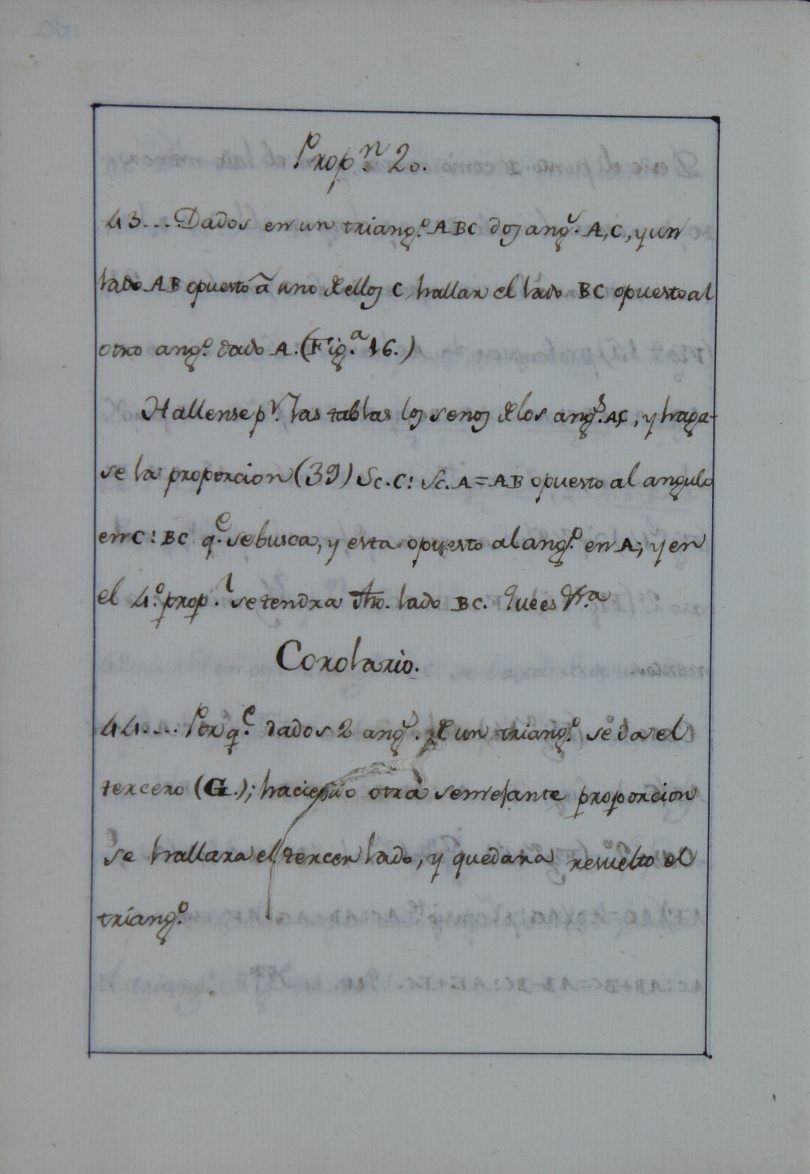 Prop.n 2o.
43... Dados en un triang.o ABC dos ang.s A, C, y un
lado AB opuesto â uno de ellos C, hallar el lado BC opuesto al
otro ang.o dado A. (Fig.a 16.)
Hallense p.r las tablas los senos de los ang.s A,C, y haga-
se la proporcion (39) Sc. C: Sc. A = AB opuesto al angulo
en C: BC q.e se busca, y esta opuesto al ang.o en A; y en
el 4.o prop.l se tendra dho. lado BC. Que es &.a
Corolario.
44.... Porq.e dados 2 ang.s de un triang.o se da el
tercero (G.); haciendo otra semejante proporcion
se hallara el tercer lado, y quedara resuelto el
triang.o